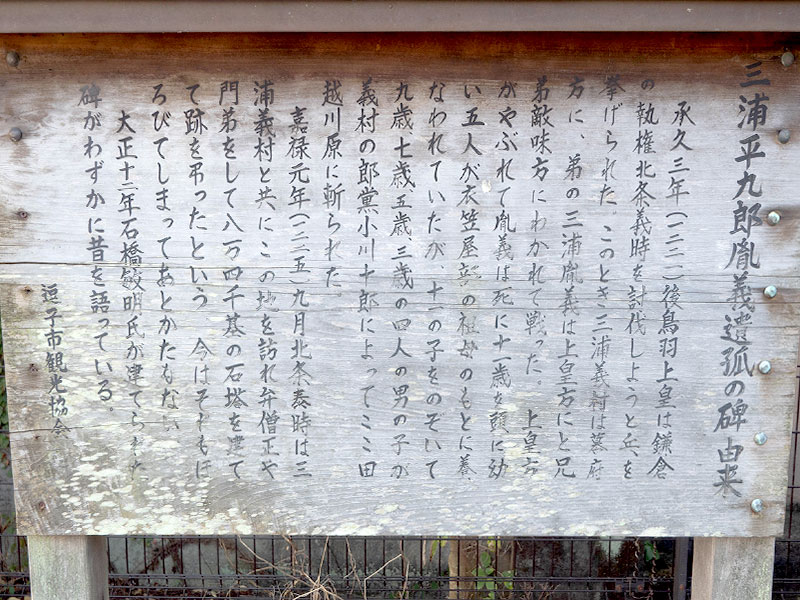 三浦平九郎胤義遺孤の碑由来
承久三年(一二二一)後鳥羽上皇は鎌倉
の執権北条義時を討伐しようと兵を
挙げられた。このとき三浦義村は幕府
方に、弟の三浦胤義は上皇方にと兄
弟敵味方にわかれて戦った。上皇方
がやぶれて胤義は死に十一歳を頭に幼
い五人が衣笠屋部の祖母のもとに養
なわれていたが、十一の子をのぞいて
九歳七歳五歳、三歳の四人の男の子が
義村の郎党小川十郎によってここ田
越川原に斬られた。
嘉禄元年(一二二五)九月北条泰時は三
浦義村と共にこの地を訪れ弁僧正や
門弟をして八万四千基の石塔を建て
て跡を弔ったという 今はそれもほ
ろびてしまってあとかたもない
大正十二年石橋敏明氏が建てられた
碑がわずかに昔を語っている。
逗子市観光協会